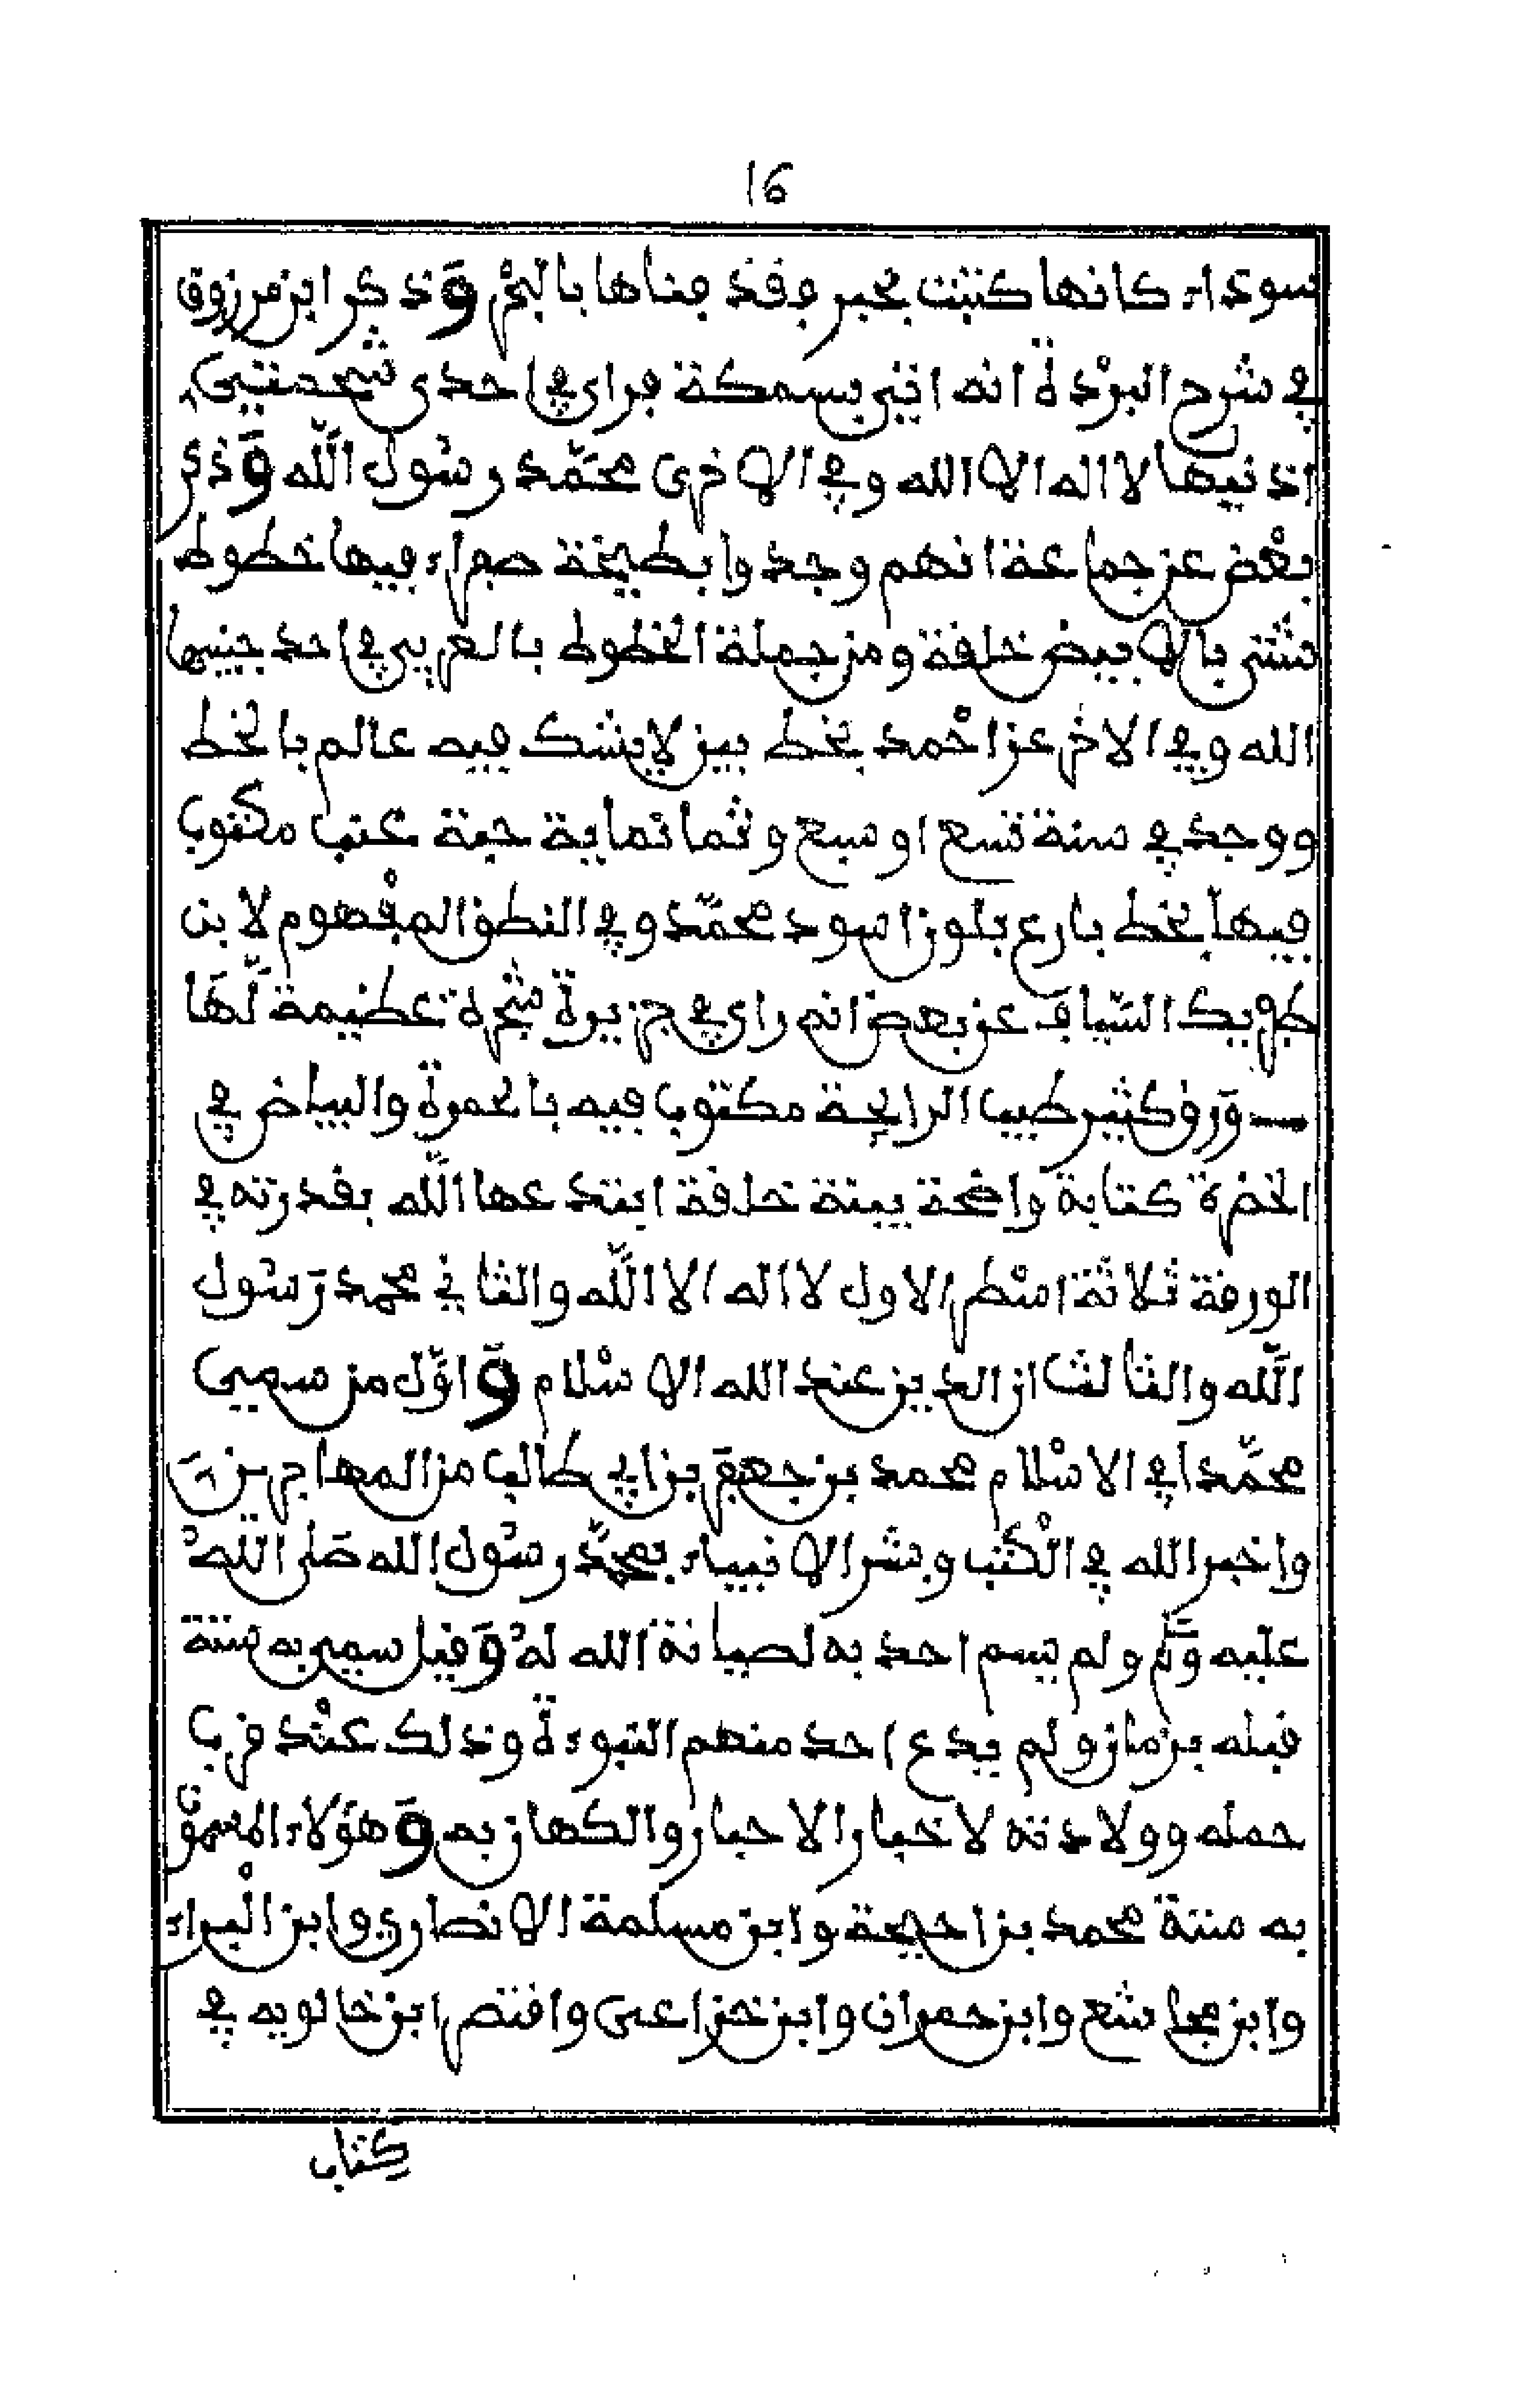 16
سوداء كانها كتبت بحبر فقذفناها بالبحر وذكر ابن مرزوق
في شرح البردة انه اتي بسمكة فراى في احدى شحمتي
اذنيها لا اله الا الله وفي الاخرى محمد رسول الله وذكر
بعض عن جماعة انهم وجدوا بطيخة صفراء فيها خطوط
شتى بالابيض خلقة ومن جملة الخطوط بالعربي في احد جنبيها
الله وفي الاخر عز احمد بخط بين لا يشك فيه عالم بالخط
ووجد في سنة تسع او سبع وثمانماية حبة عنب مكتوب
فيها بخط بارع بلون اسود محمد وفي النطق المفهوم لابن
طغربك السياف عن بعض انه راى في جزيرة شجرة عظيمة لها
ورق كثير طيب الرايحة مكتوب فيه بالحمرة والبياض في
الخضرة كتابة واضحة بينة خلقة ابتدعها الله بقدرته في
الورقة ثلاثة اسطر الاول لا اله الا الله والثاني محمد رسول
الله والثالث ان الدين عند الله الاسلام واول من سمي
محمدا في الاسلام محمد بن جعفر بن ابي طالب من المهاجرين
واخبر الله في الكتب وبشر الانبياء بمحمد رسول الله صلى الله
عليه وسلم ولم يسم احد به لصيانة الله له وقيل سمي به ستة
قبله بزمان ولم يدع احد منهم النبوءة وذلك عند قرب
حمله وولادته لاخبار الاحبار والكهان به وهؤلاء المسمون
به ستة محمد بن احيحة وابن مسلمة الانصاري وابن البراء
وابن مجاشع وابن حمران وابن خزاعى واقتصر ابن خالويه في
كتاب